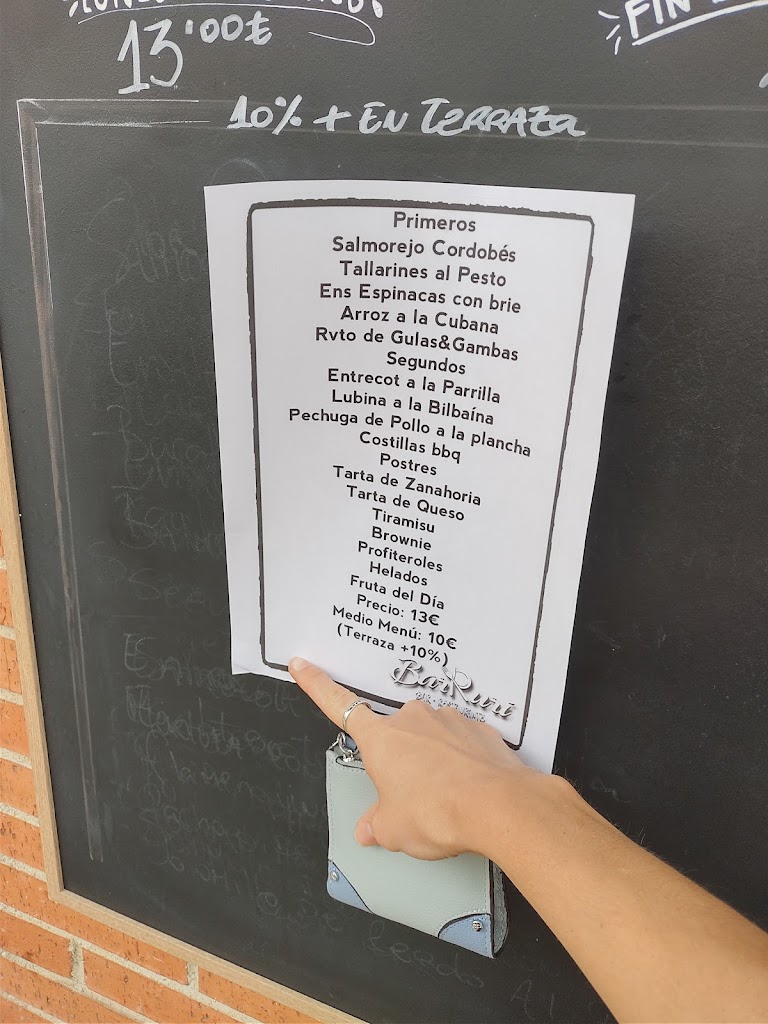 13'00€
FIN
10% + EN TERRAZA
Primeros
Salmorejo Cordobés
Tallarines al Pesto
Ens Espinacas con brie
Arroz a la Cubana
Rvto de Gulas&Gambas
Segundos
Entrecot a la Parrilla
Lubina a la Bilbaína
Pechuga de Pollo a la plancha
Costillas bbq
Postres
Tarta de Zanahoria
Tarta de Queso
Tiramisu
Brownie
Profiteroles
Helados
Fruta del Día
Precio: 13€
Medio Menú: 10€
(Terraza +10%)
BarRuri